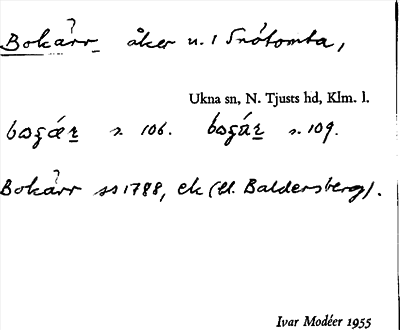 Bokärr åker u. 1 Snötomta,
Ukna sn, N. Tjusts hd, Klm. l.
s. 106. s. 109.
Bokärr ss 1788, ek (U. Baldersberg).
Ivar Modéer 1955